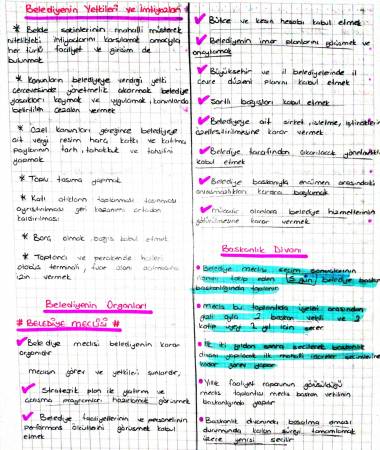 Belediyenin Yetkileri ve İmtiyazları
* Belde sakinlerinin mahalli müşterek
nitelikteki ihtiyaçlarını karşılamak amacıyla
her türlü faaliyet ve girişim de
bulunmak
* Kanunların belediyeye verdiği yetki
çerçevesinde yönetmelik çıkarmak belediye
yasakları koymak ve uygulamak, kanunlarda
belirtilen cezaları vermek
* Özel kanunları gereğince belediyeye
ait vergi resim harç katkı ve katılma
paylarının tarh, tahakkuk ve tahsilini
yapmak
* Toplu taşıma yapmak
* Katı atıkların toplanması taşınması
ayrıştırılması geri kazanımı ortadan
kaldırılması
* Borç almak bağış kabul etmek
* Toptancı ve perakende halleri
otobüs terminali, fuar alanı
izin vermek
Belediyenin Organları
# BELEDİYE MECLİSİ #
✓ Belediye meclisi belediyenin karar
organıdır
meclisin görev ve yetkileri şunlardır;
✓ Stratejik plan ile yatırım ve
çalışma programları görüşmek
✓ Belediye faaliyetlerinin ve personelinin
performans ölçütlerini görüşmek kabul
etmek
✓ Bütçe ve kesin hesabı kabul etmek
✓ Belediyenin imar planlarını görüşmek ve
onaylamak
✓ Büyükşehir ve il belediyelerinde il
çevre düzeni planını kabul etmek
✓ Şartlı bağışları kabul etmek
✓ Belediyeye ait şirket, işletme, iştiraklerin
özelleştirilmesine karar vermek
✓ Belediye tarafından çıkarılacak yönetmelikleri
kabul etmek
✓ Belediye başkanıyla encümen arasındaki
anlaşmazlıkları karara bağlamak
✓ mücavir alanlara belediye hizmetlerinin
götürülmesine karar vermek
Başkanlık Divanı
• Belediye meclisi seçim sonuçlarının
ilanını takip eden 5. gün belediye başkanı
başkanlığında toplanır
• meclis bu toplantıda üyeleri arasından
gizli oyla 2 başkan vekili ve 2
katip üye 2 yıl için seçer
• İlk iki yıldan sonra seçilecek başkanlık
divanı yapılacak ilk mahalli idareler seçimlerine
kadar görev yapar
• Yıllık faaliyet raporunun görüşüldüğü
meclis toplantısı meclis başkan vekilinin
başkanlığında yapılır
• Başkanlık divanında boşalma olması
durumunda kalan süreyi tamamlamak
üzere yenisi seçilir